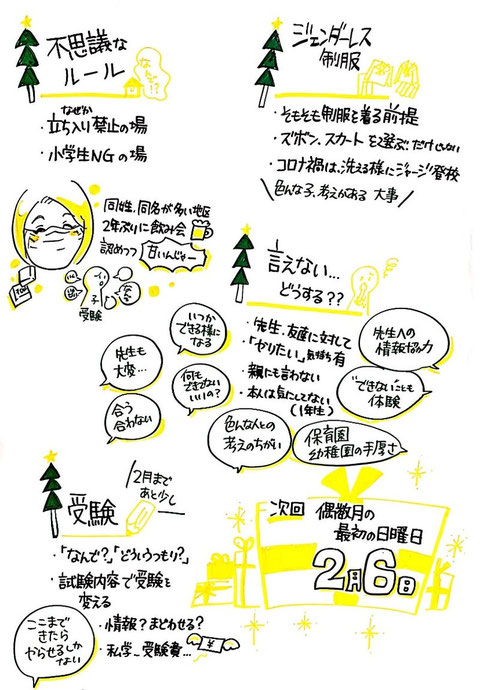 不思議な
ルール
なんで!?
なぜか
・立ち入り禁止の場
・小学生NGの場
ジェンダーレス
制服
・そもそも制服を着る前提
・ズボン、スカートを選ぶだけじゃない
・コロナ禍は、洗える様にジャージ登校
＼色んな子、考えがある 大事／
同姓、同名が多い地区
2年ぶりに飲み会
認めつつ 甘いんじゃー
受験
言えない…
どうする??
・先生、友達に対して
・「やりたい」気持ち有
・親にも言わない
・本人は気にしてない
(1年生)
先生への
情報協力
"できない"ことも
体験
いつか
できる様に
なる
先生も
大変…
何も
できてない
いいの?
合う
合わない
色んな人との
考えのちがい
保育園
幼稚園の手厚さ
受験
2月まで
あと少し
・「なんで?」「どういうつもり?」
・試験内容で受験を
変える
・情報?まどわせる?
・私学…受験費…
¥
ここまで
きたら
やらせるしか
ない
次回 偶数月の
最初の日曜日
2月6日